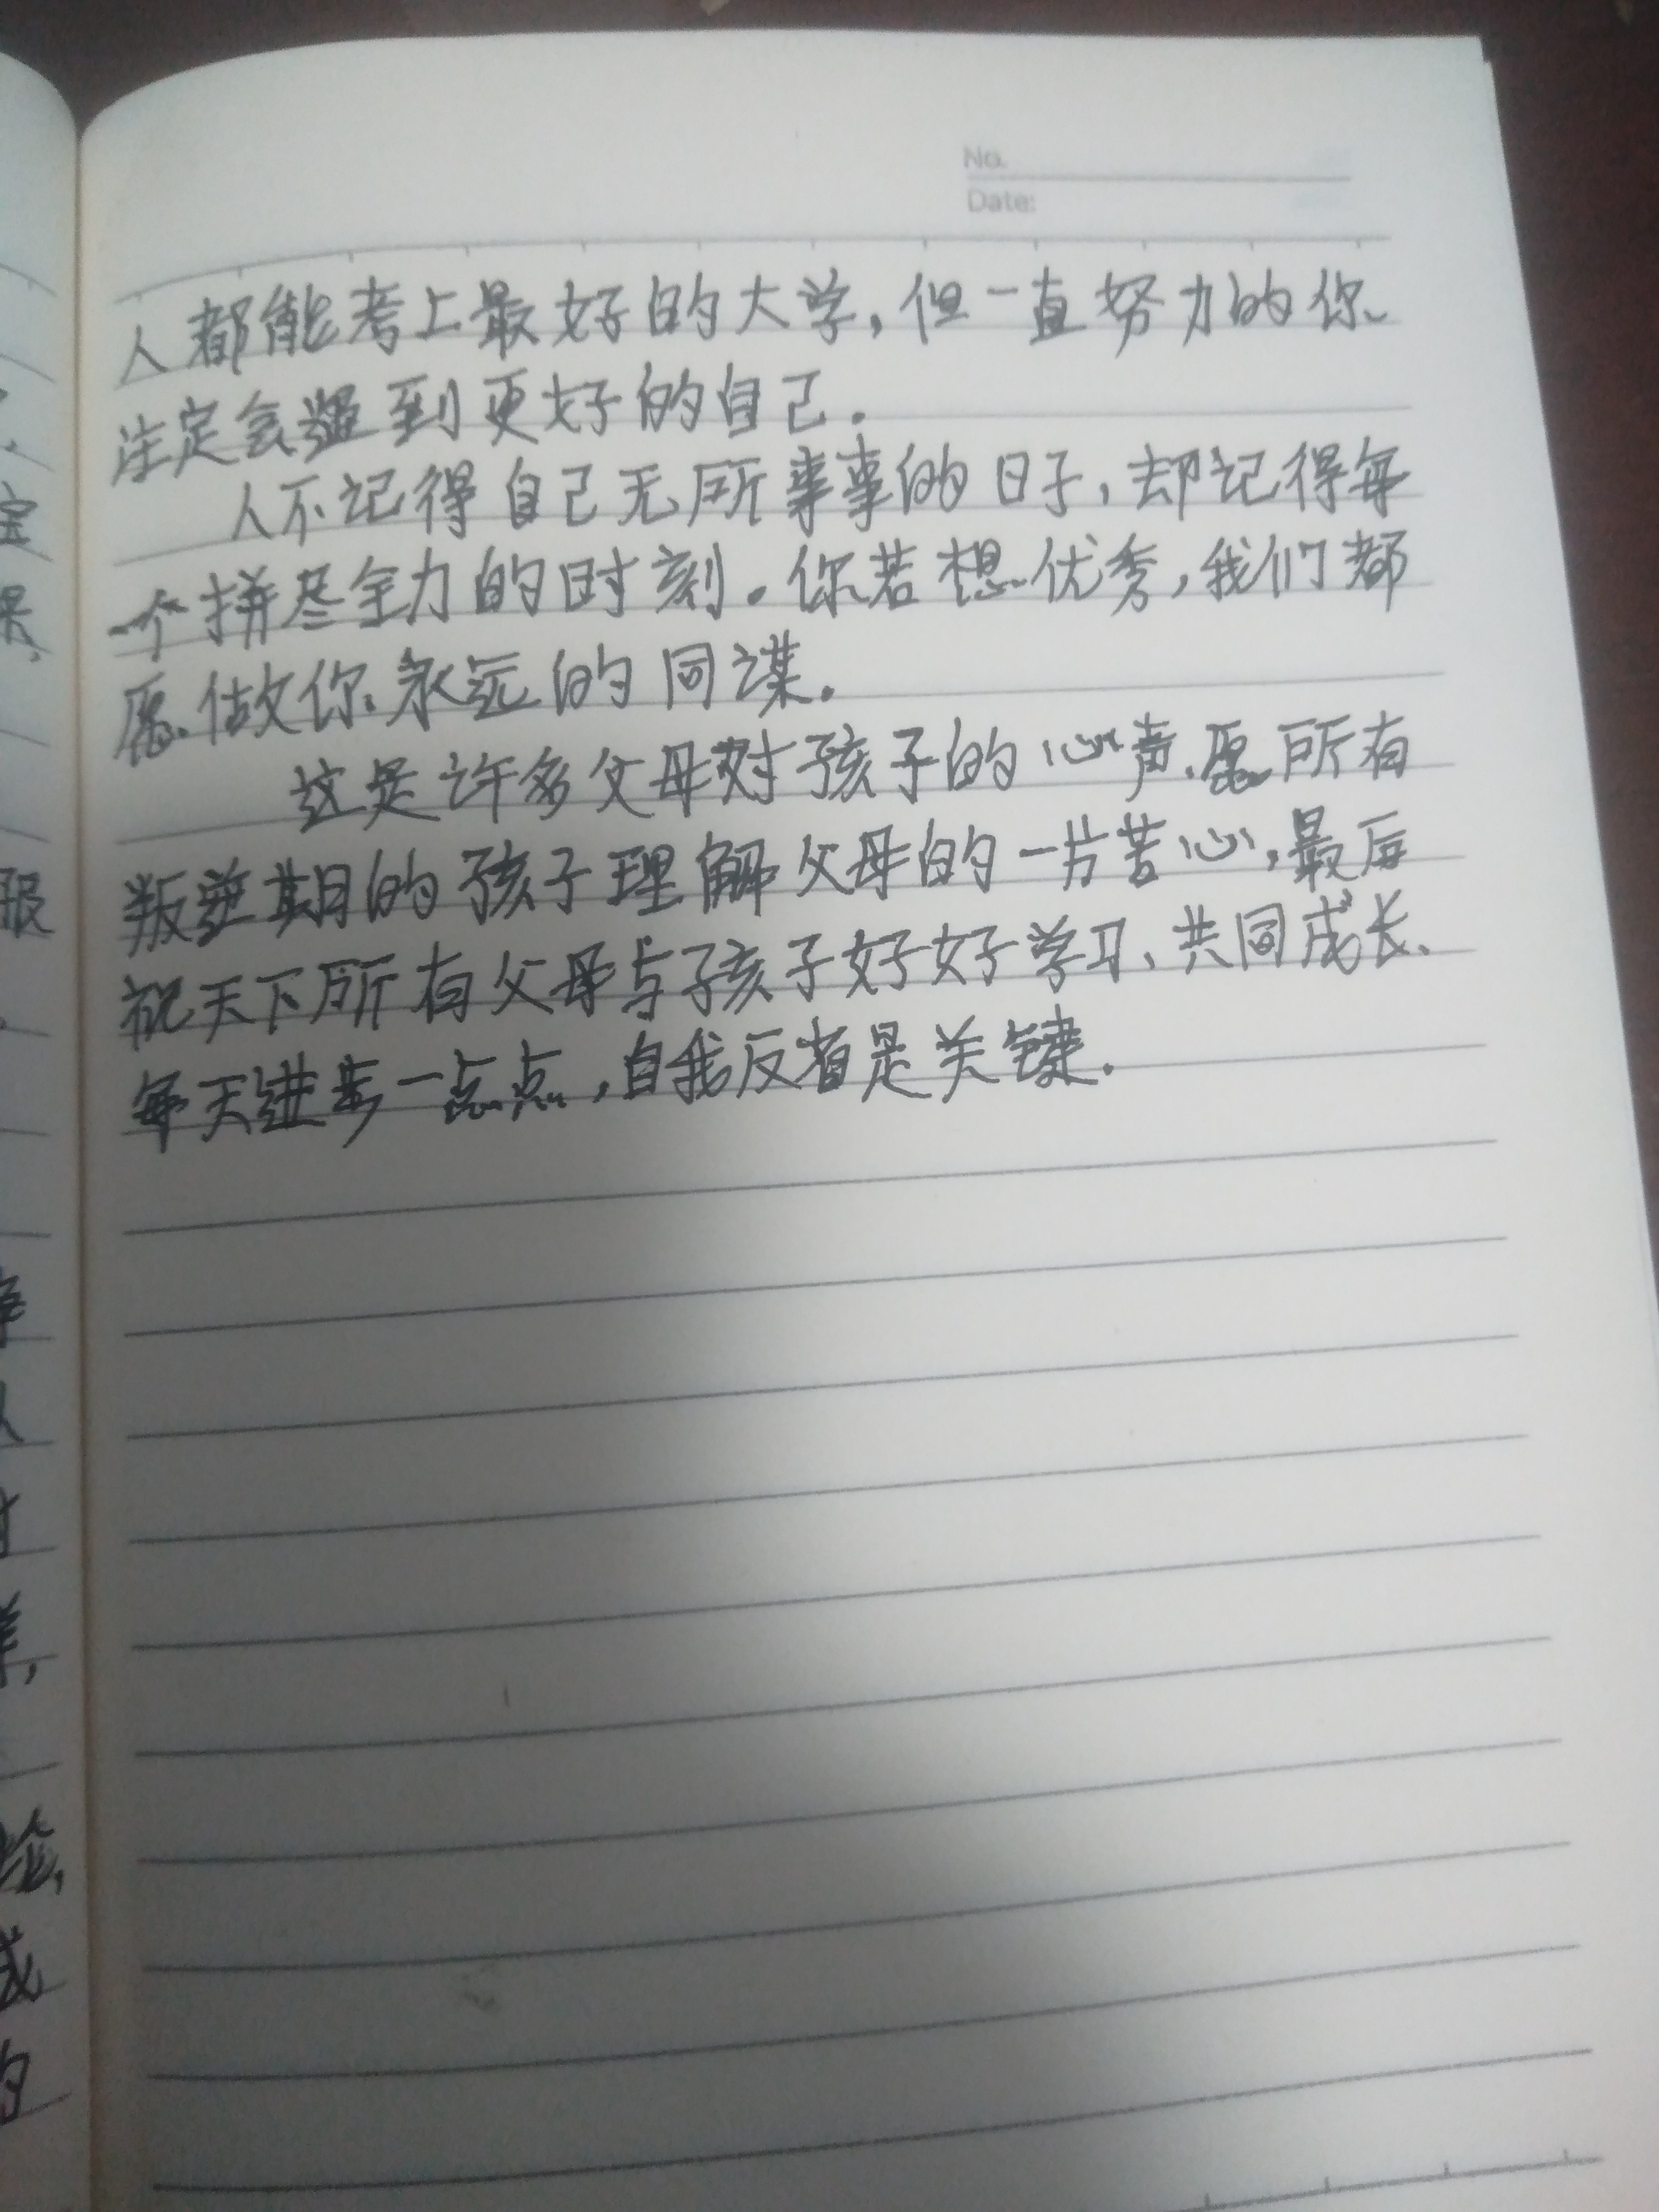 No.
Date:
人都能考上最好的大学,但一直努力的你
注定会遇到更好的自己.
人不记得自己无所事事的日子,却记得每
一个拼尽全力的时刻.你若想优秀,我们都
愿做你永远的同谋.
这是许多父母对孩子的心声.愿所有
叛逆期的孩子理解父母的一片苦心,最后
祝天下所有父母与孩子好好学习、共同成长、
每天进步一点点,自我反省是关键.